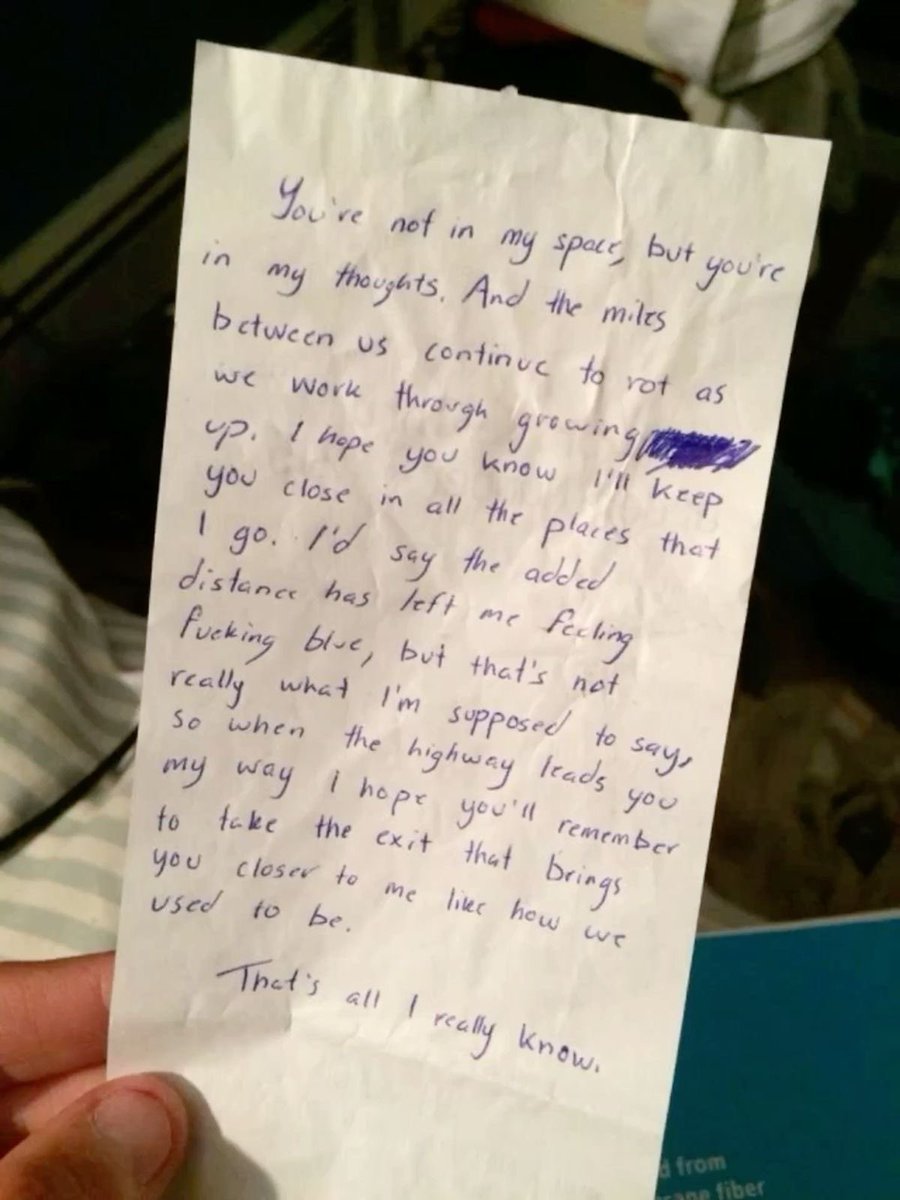 You're not in my space, but you're
in my thoughts. And the miles
between us continue to rot as
we work through growing
up. I hope you know I'll keep
you close in all the places that
I go. I'd say the added
distance has left me feeling
fucking blue, but that's not
really what I'm supposed to say,
so when the highway leads you
my way I hope you'll remember
to take the exit that brings
you closer to me like how we
used to be.
That's all I really know.
d from
cane fiber